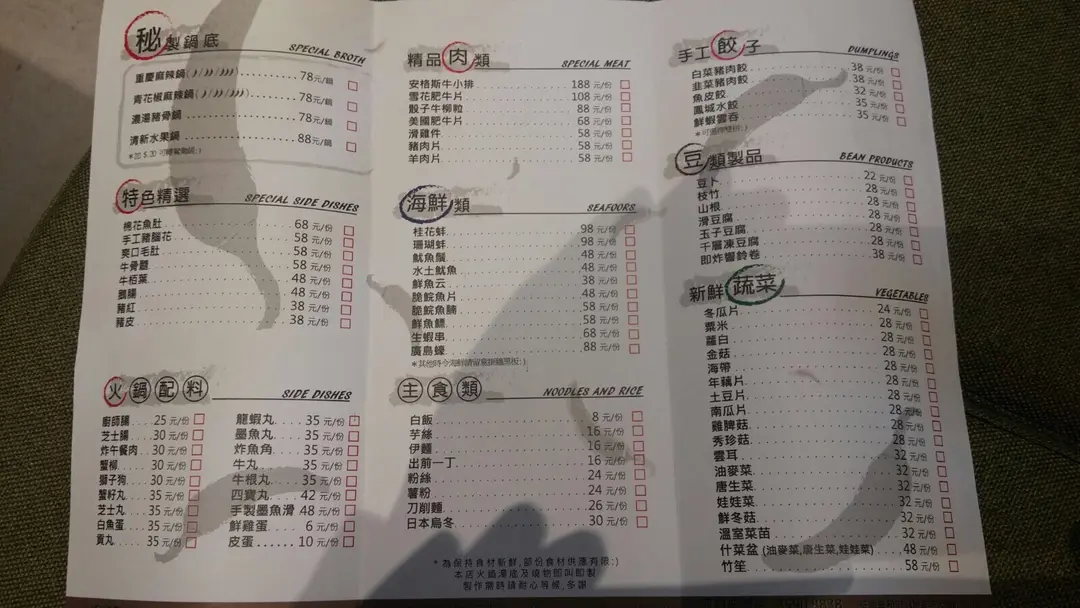 秘製鍋底 SPECIAL BROTH
重慶麻辣鍋 78元/鍋
青花椒麻辣鍋 78元/鍋
濃湯豬骨鍋 78元/鍋
清新水果鍋 88元/鍋
特色精選 SPECIAL SIDE DISHES
棉花魚肚 68 元/份
手工豬腦花 58 元/份
爽口毛肚 58 元/份
牛骨髓 58 元/份
牛栢葉 48 元/份
鵝腸 48 元/份
豬紅 38 元/份
豬皮 38 元/份
火鍋配料 SIDE DISHES
廚師腸 25 元/份
芝士腸 30 元/份
炸午餐肉 30 元/份
蟹柳 30 元/份
獅子狗 30 元/份
蟹籽丸 35 元/份
芝士丸 35 元/份
白魚蛋 35 元/份
貢丸 35 元/份
龍蝦丸 35 元/份
墨魚丸 35 元/份
炸魚角 35 元/份
牛丸 35 元/份
牛根丸 35 元/份
四寶丸 42 元/份
手製墨魚滑 48 元/份
鮮雞蛋 6 元/份
皮蛋 10 元/份
精品肉類 SPECIAL MEAT
安格斯牛小排 188 元/份
雪花肥牛片 108 元/份
骰子牛柳粒 88 元/份
美國肥牛片 68 元/份
滑雞件 58 元/份
豬肉片 58 元/份
羊肉片 58 元/份
海鮮類 SEAFOORS
桂花蚌 98 元/份
珊瑚蚌 98 元/份
魷魚鬚 48 元/份
水土魷魚 48 元/份
鮮魚云 38 元/份
脆鯇魚片 48 元/份
脆鯇魚腩 58 元/份
鮮魚鰾 58 元/份
生蝦串 68 元/份
廣島蠔 88 元/份
主食類 NOODLES AND RICE
白飯 8 元/份
芋絲 16 元/份
伊麵 16 元/份
出前一丁 16 元/份
粉絲 24 元/份
薯粉 24 元/份
刀削麵 26 元/份
日本烏冬 30 元/份
*為保持食材新鮮,部份食材供應有限:)
本店火鍋湯底及燒物即叫即製
製作需時請耐心等候,多謝
手工餃子 DUMPLINGS
白菜豬肉餃 38 元/份
韭菜豬肉餃 38 元/份
魚皮餃 32 元/份
鳳城水餃 35 元/份
鮮蝦雲吞 35 元/份
豆類製品 BEAN PRODUCTS
豆卜 22 元/份
枝竹 28 元/份
山根 28 元/份
滑豆腐 28 元/份
玉子豆腐 28 元/份
千層凍豆腐 28 元/份
即炸響鈴卷 38 元/份
新鮮蔬菜 VEGETABLES
冬瓜片 24 元/份
粟米 28 元/份
蘿白 28 元/份
金菇 28 元/份
海帶 28 元/份
年藕片 28 元/份
土豆片 28 元/份
南瓜片 28 元/份
雞脾菇 28 元/份
秀珍菇 28 元/份
雲耳 32 元/份
油麥菜 32 元/份
唐生菜 32 元/份
娃娃菜 32 元/份
鮮冬菇 32 元/份
溫室菜苗 32 元/份
什菜盆 (油麥菜,唐生菜,娃娃菜) 48 元/份
竹笙 58 元/份